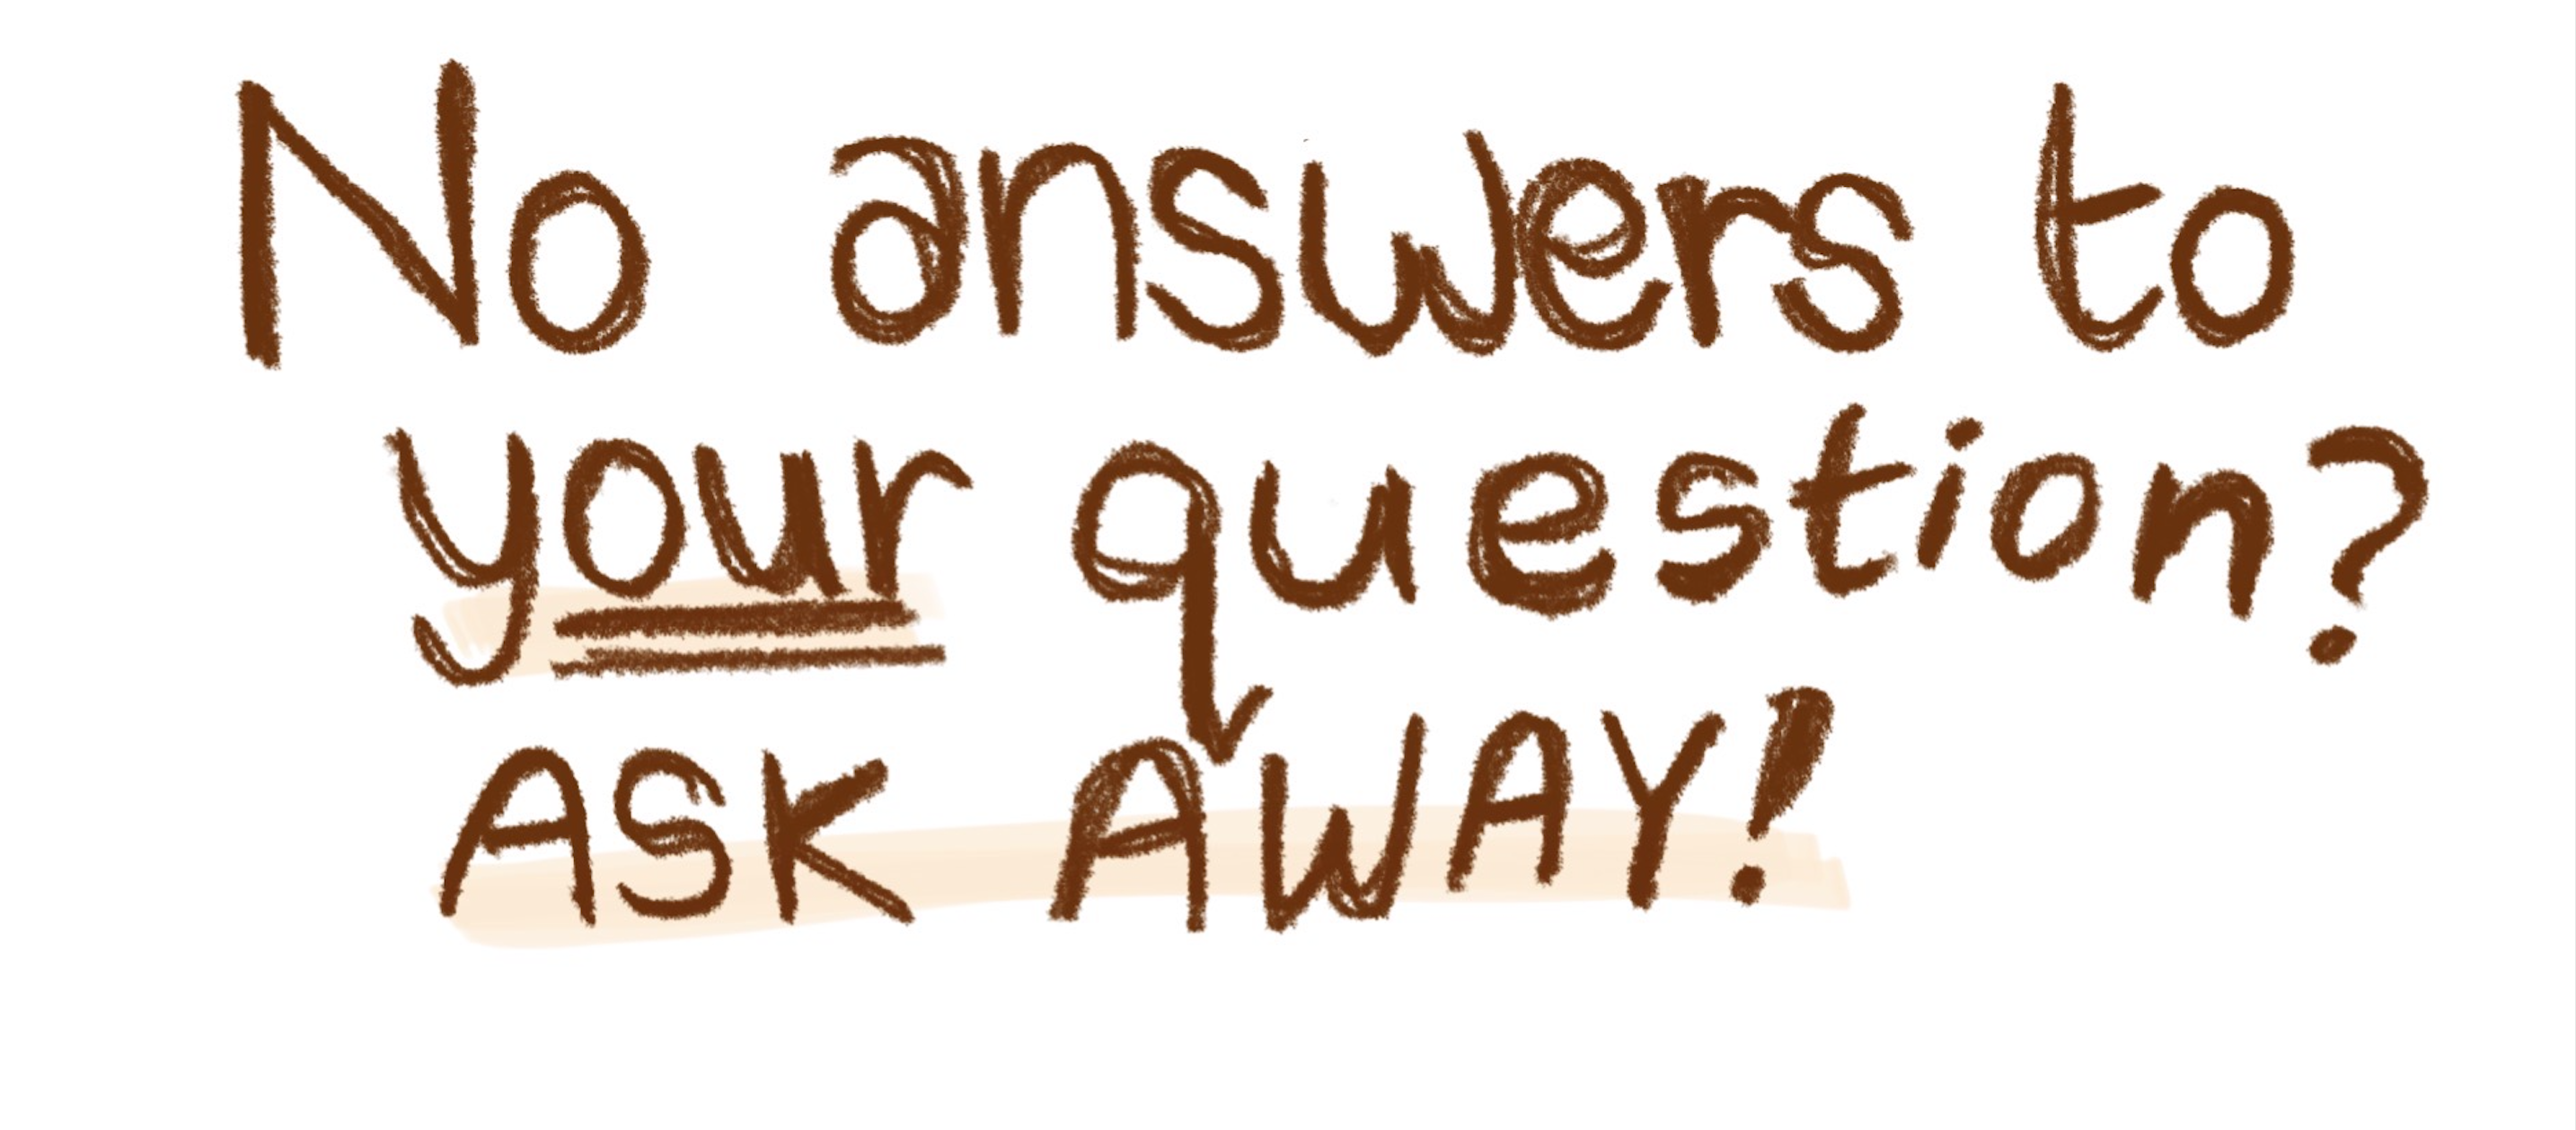 No answers to
your question?
ASK AWAY!